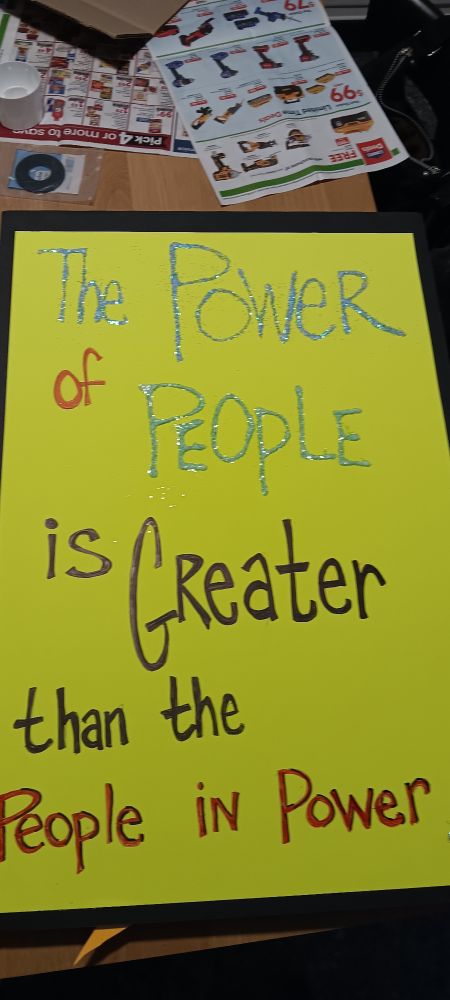 The POWER
of
PEOPLE
is GReater
than the
People iN Power
Pick 4 or more to save
$79
$99
Limited Time Deals
FREE